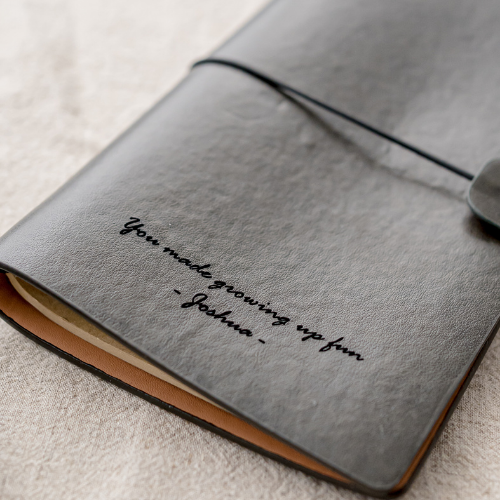 You made growing up fun
- Joshua -